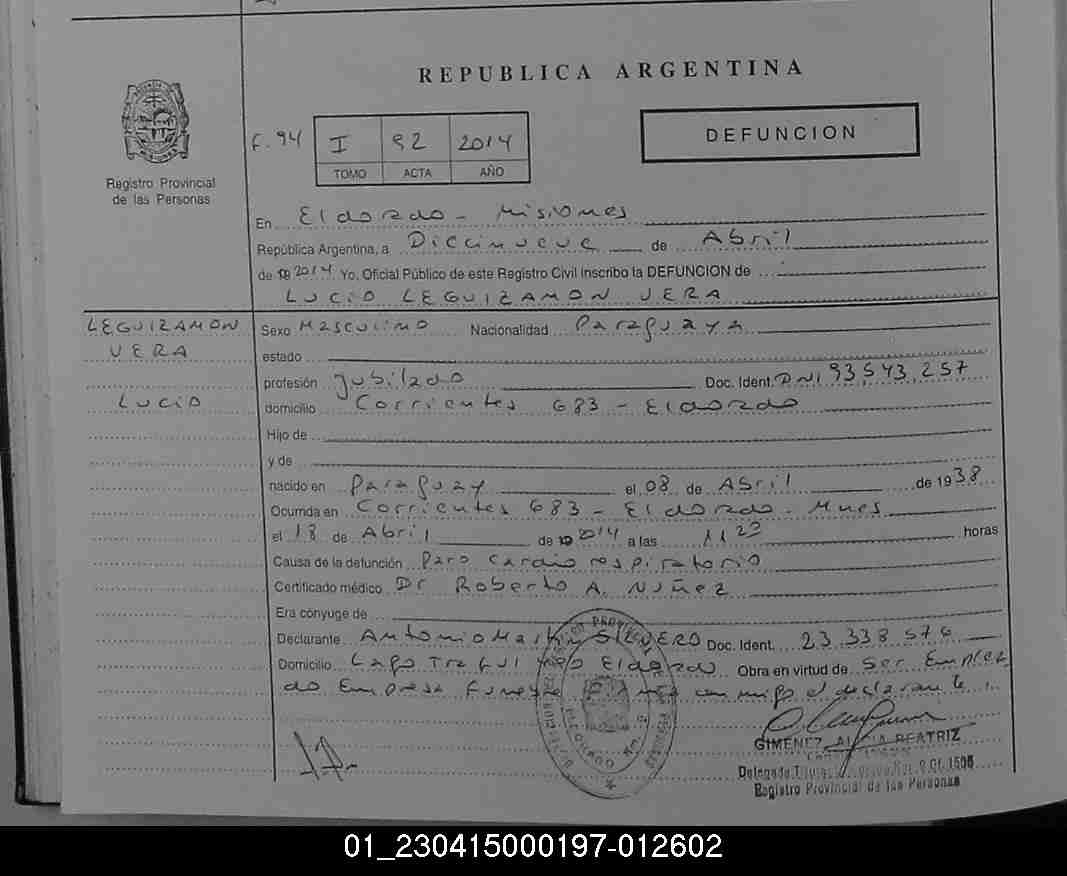 REPUBLICA ARGENTINA
Registro Provincial
de las Personas
F. 94
I 92 2014
TOMO ACTA AÑO
DEFUNCION
En Eldorado - Misiones
República Argentina, a Diecinueve de Abril
de 2014 Yo, Oficial Público de este Registro Civil inscribo la DEFUNCION de
LUCIO LEGUIZAMON VERA
LEGUIZAMON
VERA
LUCIO
Sexo Masculino Nacionalidad Paraguaya
estado
profesión Jubilado Doc. Ident. DNI 93,543,257
domicilio Corrientes 683 - Eldorado
Hijo de
y de
nacido en Paraguay el 08 de Abril de 1938
Ocurrida en Corrientes 683 - Eldorado - Mnes
el 18 de Abril de 2014 a las 11 horas
Causa de la defunción Paro cardio respiratorio
Certificado médico Dr Roberto A. Nuñez
Era cónyuge de
Declarante Antonio Martin SILVERO Doc. Ident. 23.338.576
Domicilio Lago Eldorado Obra en virtud de Ser Emplea
do Empresa conmigo el declarante
GIMENEZ BEATRIZ
Registro Provincial de las Personas
01_230415000197-012602